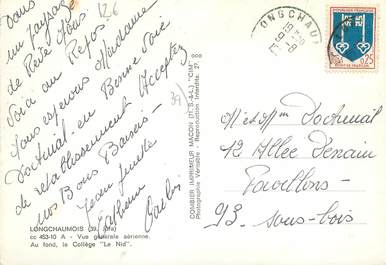 Dans
un paysage
de Rêve Nous
Voici au Repos
Nous esperons Madame
Doctrinal en Bonne Voie
de retablissement Acceptez
nos Bons Baisers
Jean
Catherine
126
39
LONGCHAUMOIS (39. Jura)
cc 453-10 A - Vue générale aérienne.
Au fond, le Collège "Le Nid".
COMBIER IMPRIMEUR MACON (71. S.-&-L.) "CIM"
Photographie Véritable - Reproduction Interdite.
LONGCHAUMOIS
0,25
M et Mme Doctrinal
12 Allee Denain
Pavillons-
93. Sous-bois